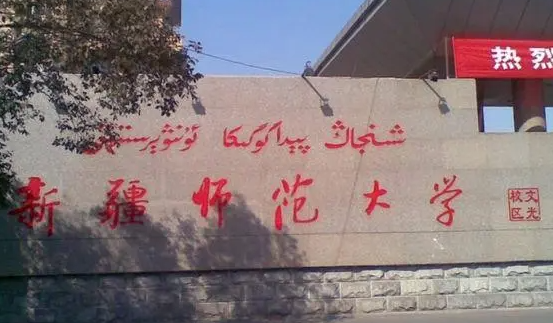 热烈
شىنجاڭ پېداگوگىكا ئۇنىۋېرسىتېتى
新疆师范大学
文光校区